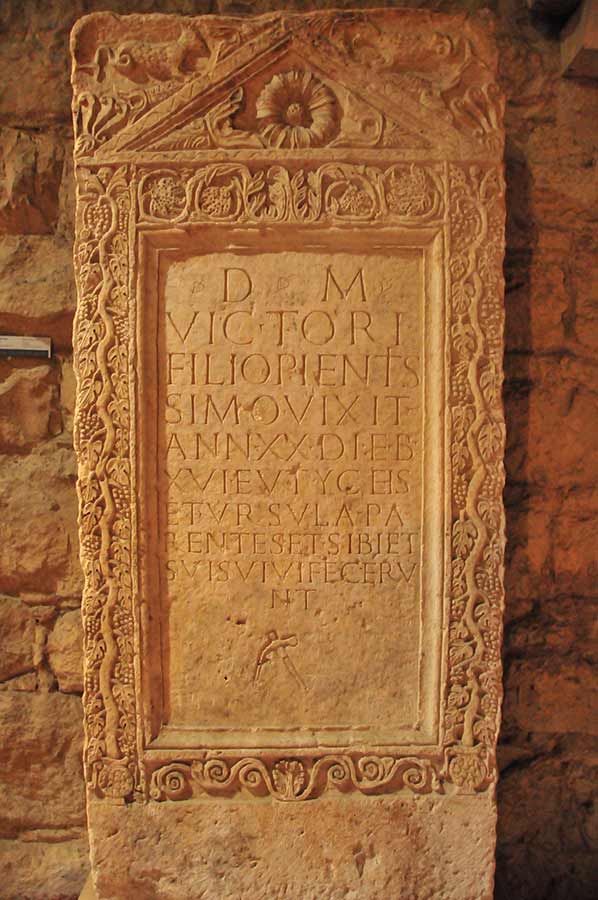 D M
VICTORI
FILIO PIENTS
SIMO QVIXIT
ANN·XX·DIEB
XVI EVTYCHS
ET VRSVLA·PA
RENTES ET·SIBI ET
SVIS VIVI FECERV
NT